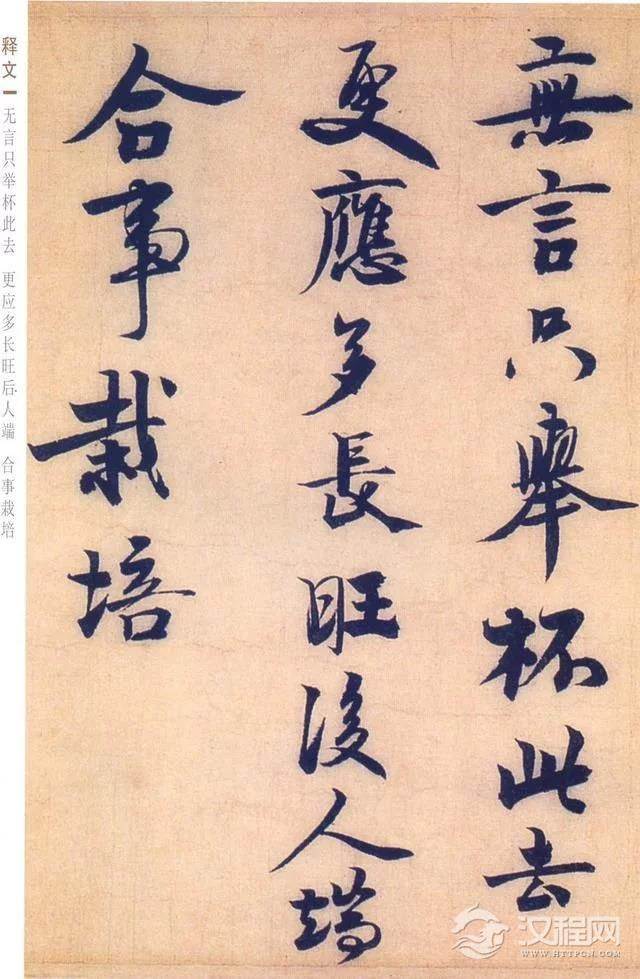 無言只舉杯此去
更應多長旺後人端
合事栽培
释文
无言只举杯此去 更应多长旺后人端 合事栽培
汉程网
WWW.HTTPCN.COM